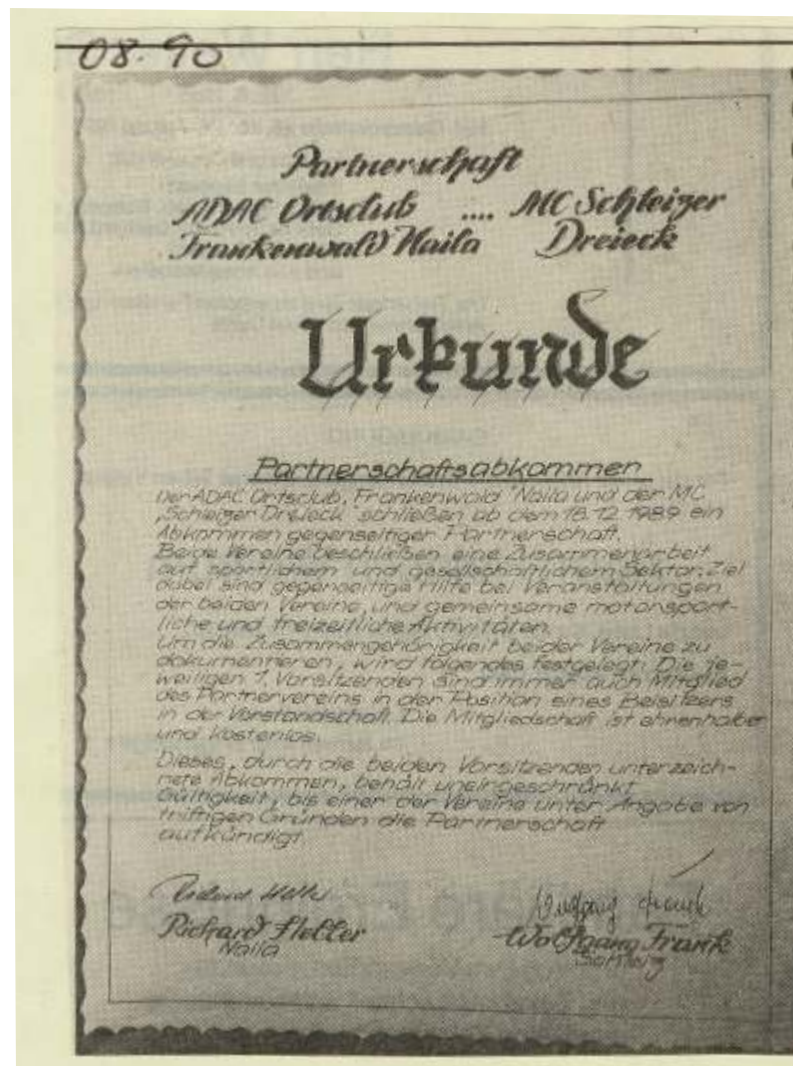 08.90
Partnerschaft
ADAC Ortsclub .... MC Schleizer
Frankenwald Naila Dreieck
Urkunde
Partnerschaftsabkommen
Der ADAC Ortsclub, Frankenwald Naila und der MC
„Schleizer Dreieck" schließen ab dem 16.12.1989 ein
Abkommen gegenseitiger Partnerschaft.
Beide Vereine beschließen eine Zusammenarbeit
auf sportlichem und gesellschaftlichem Sektor. Ziel
dabei sind gegenseitige Hilfe bei Veranstaltungen
der beiden Vereine, und gemeinsame motorsport-
liche und freizeitliche Aktivitäten.
Um die Zusammengehörigkeit beider Vereine zu
dokumentieren, wird folgendes festgelegt: Die je-
weiligen 1. Vorsitzenden sind immer auch Mitglied
des Partnervereins in der Position eines Beisitzers
in der Vorstandschaft. Die Mitgliedschaft ist ehrenhalber
und kostenlos.
Dieses, durch die beiden Vorsitzenden unterzeich-
nete Abkommen, behält uneingeschränkt
Gültigkeit, bis einer der Vereine unter Angabe von
triftigen Gründen die Partnerschaft
aufkündigt.
Richard Heller Wolfgang Franck
Naila Schleiz